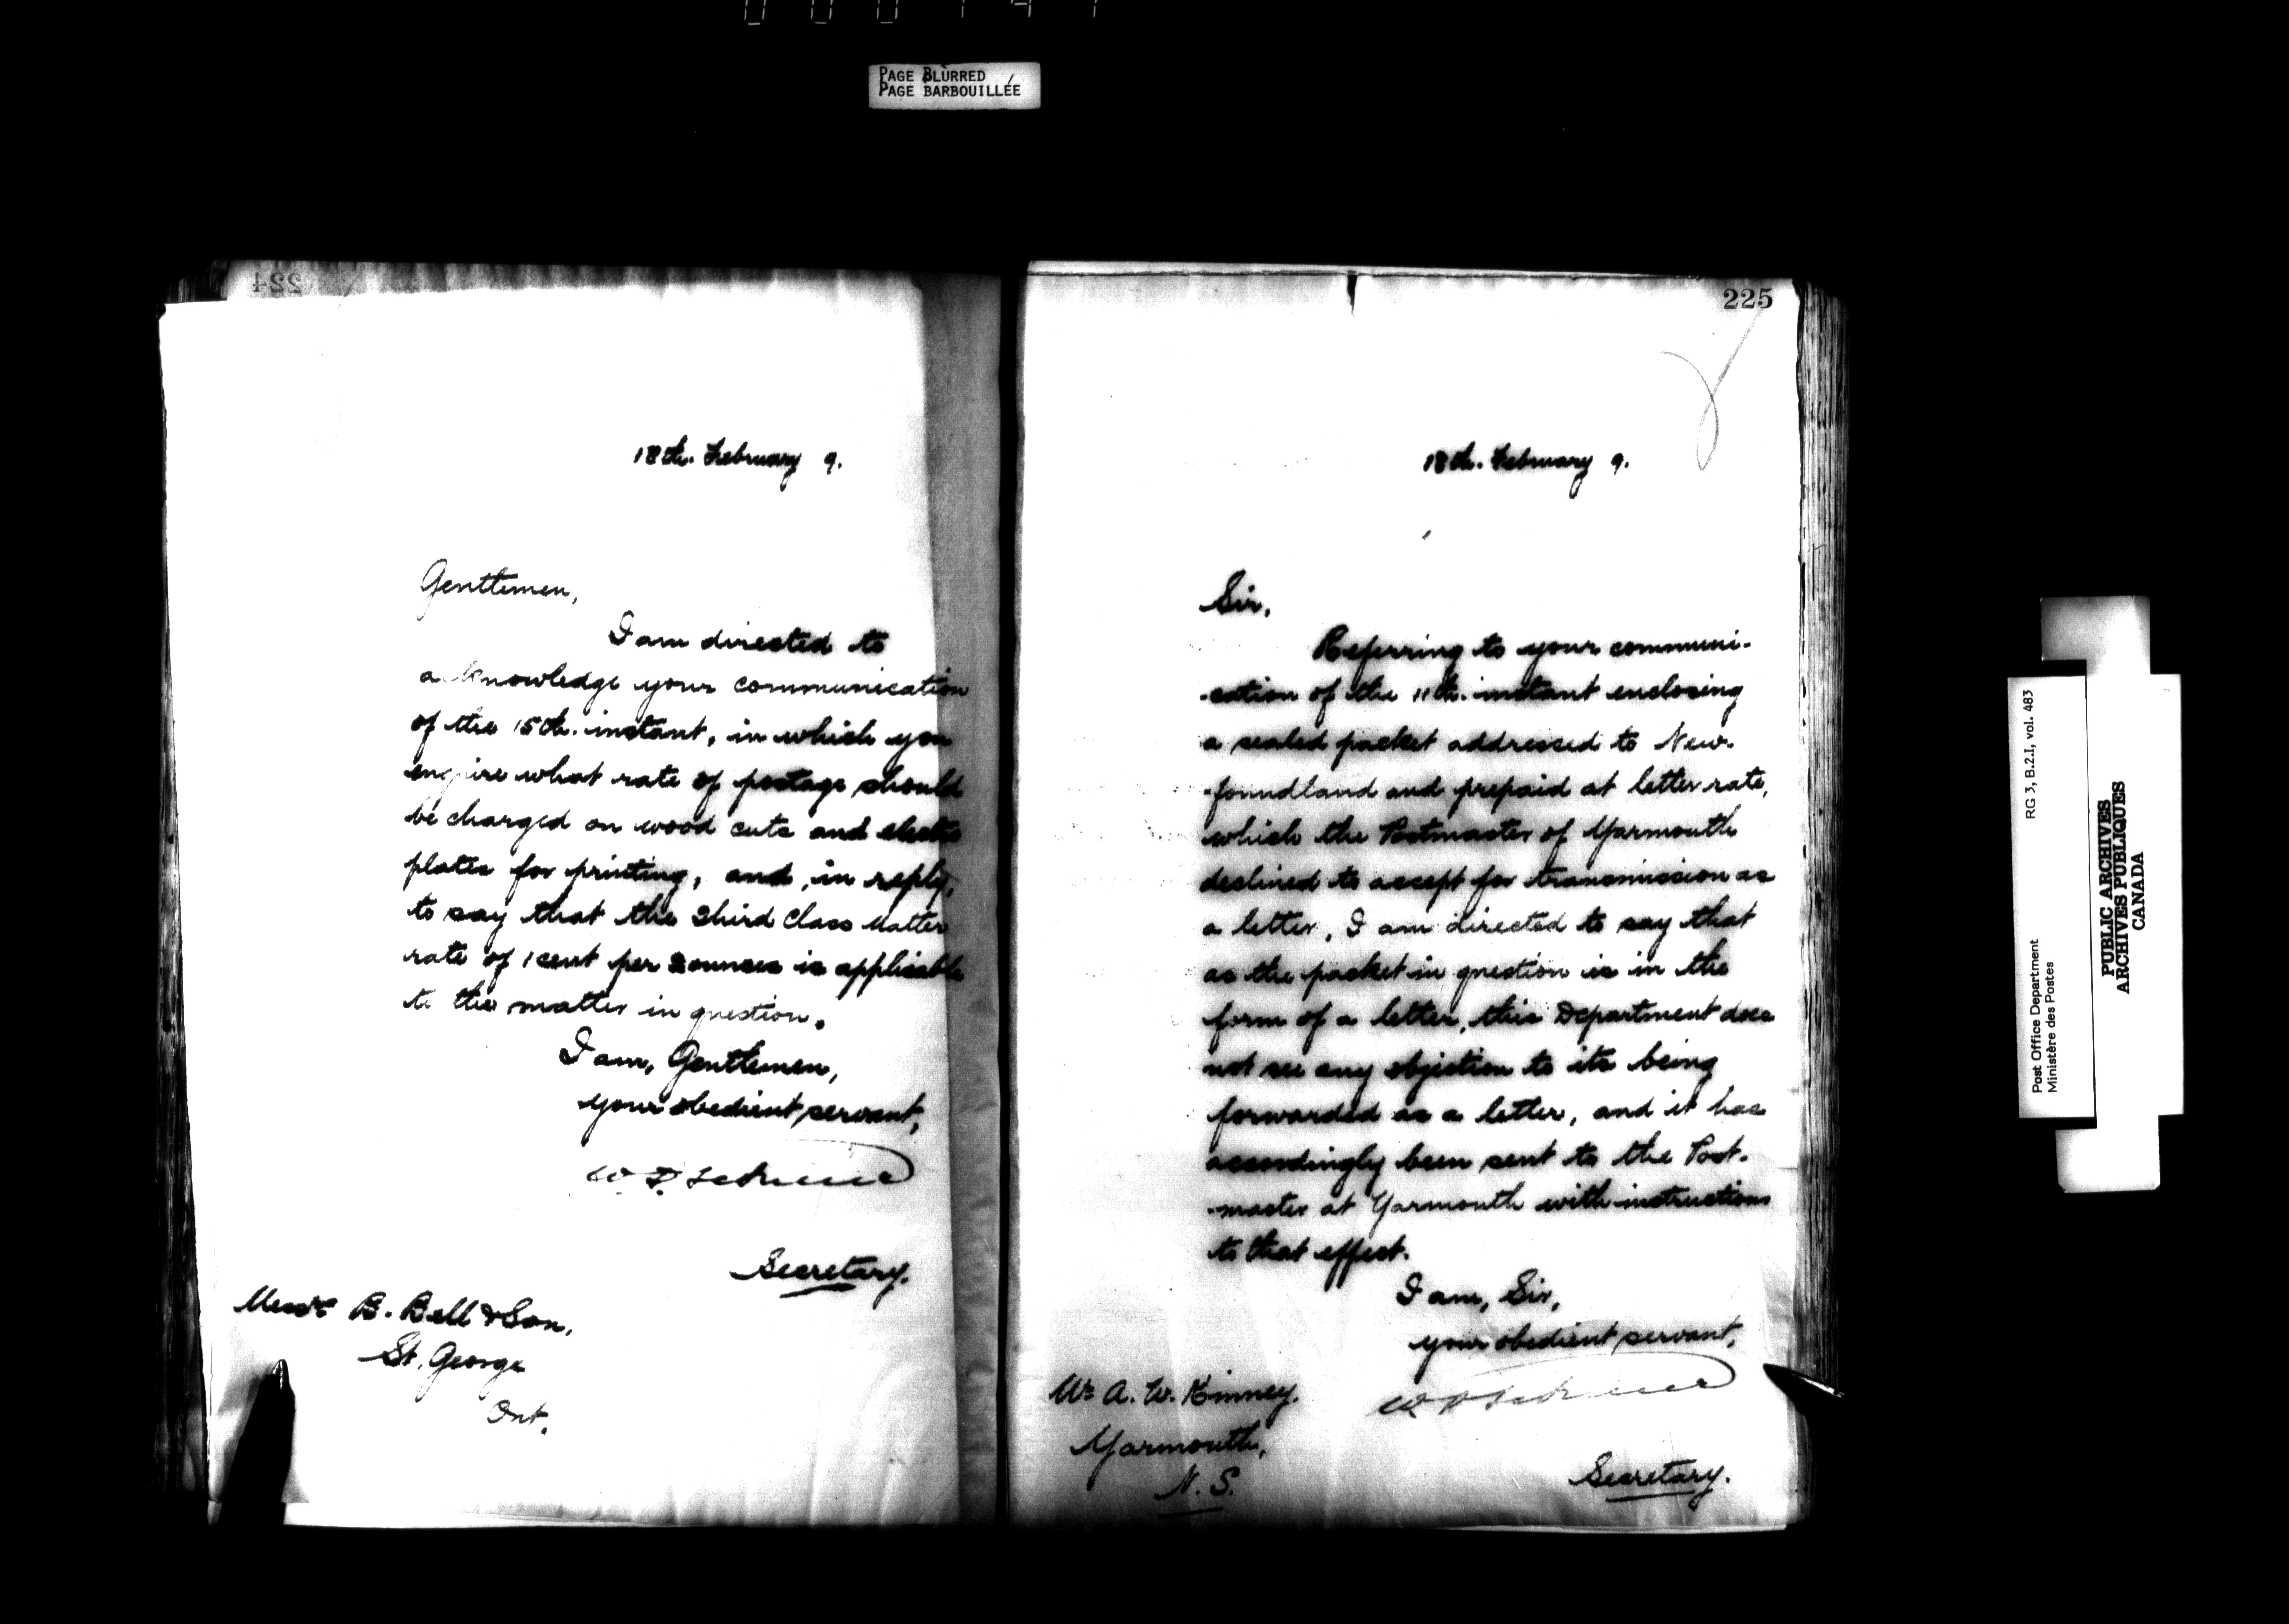 PAGE BLURRED
PAGE BARBOUILLÉE
224
18th. February 9.
Gentlemen,
I am directed to
acknowledge your communication
of the 15th. instant, in which you
enquire what rate of postage should
be charged on wood cuts and electro
plates for printing, and, in reply,
to say that the Third Class Matter
rate of 1 cent per 2 ounces is applicable
to the matter in question.
I am, Gentlemen,
your obedient servant,
Secretary.
Messrs B. Bell & Son,
St. George
Ont.
225
18th. February 9.
Sir,
Referring to your communi-
-cation of the 11th. instant enclosing
a sealed packet addressed to New-
-foundland and prepaid at letter rate,
which the Postmaster of Yarmouth
declined to accept for transmission as
a letter, I am directed to say that
as the packet in question is in the
form of a letter, this Department does
not see any objection to its being
forwarded as a letter, and it has
accordingly been sent to the Post-
-master at Yarmouth with instructions
to that effect.
I am, Sir,
your obedient servant,
Secretary.
Mr A. W. Kinney.
Yarmouth,
N. S.
Post Office Department RG 3, B.2.I, vol. 483
Ministère des Postes
PUBLIC ARCHIVES
ARCHIVES PUBLIQUES
CANADA